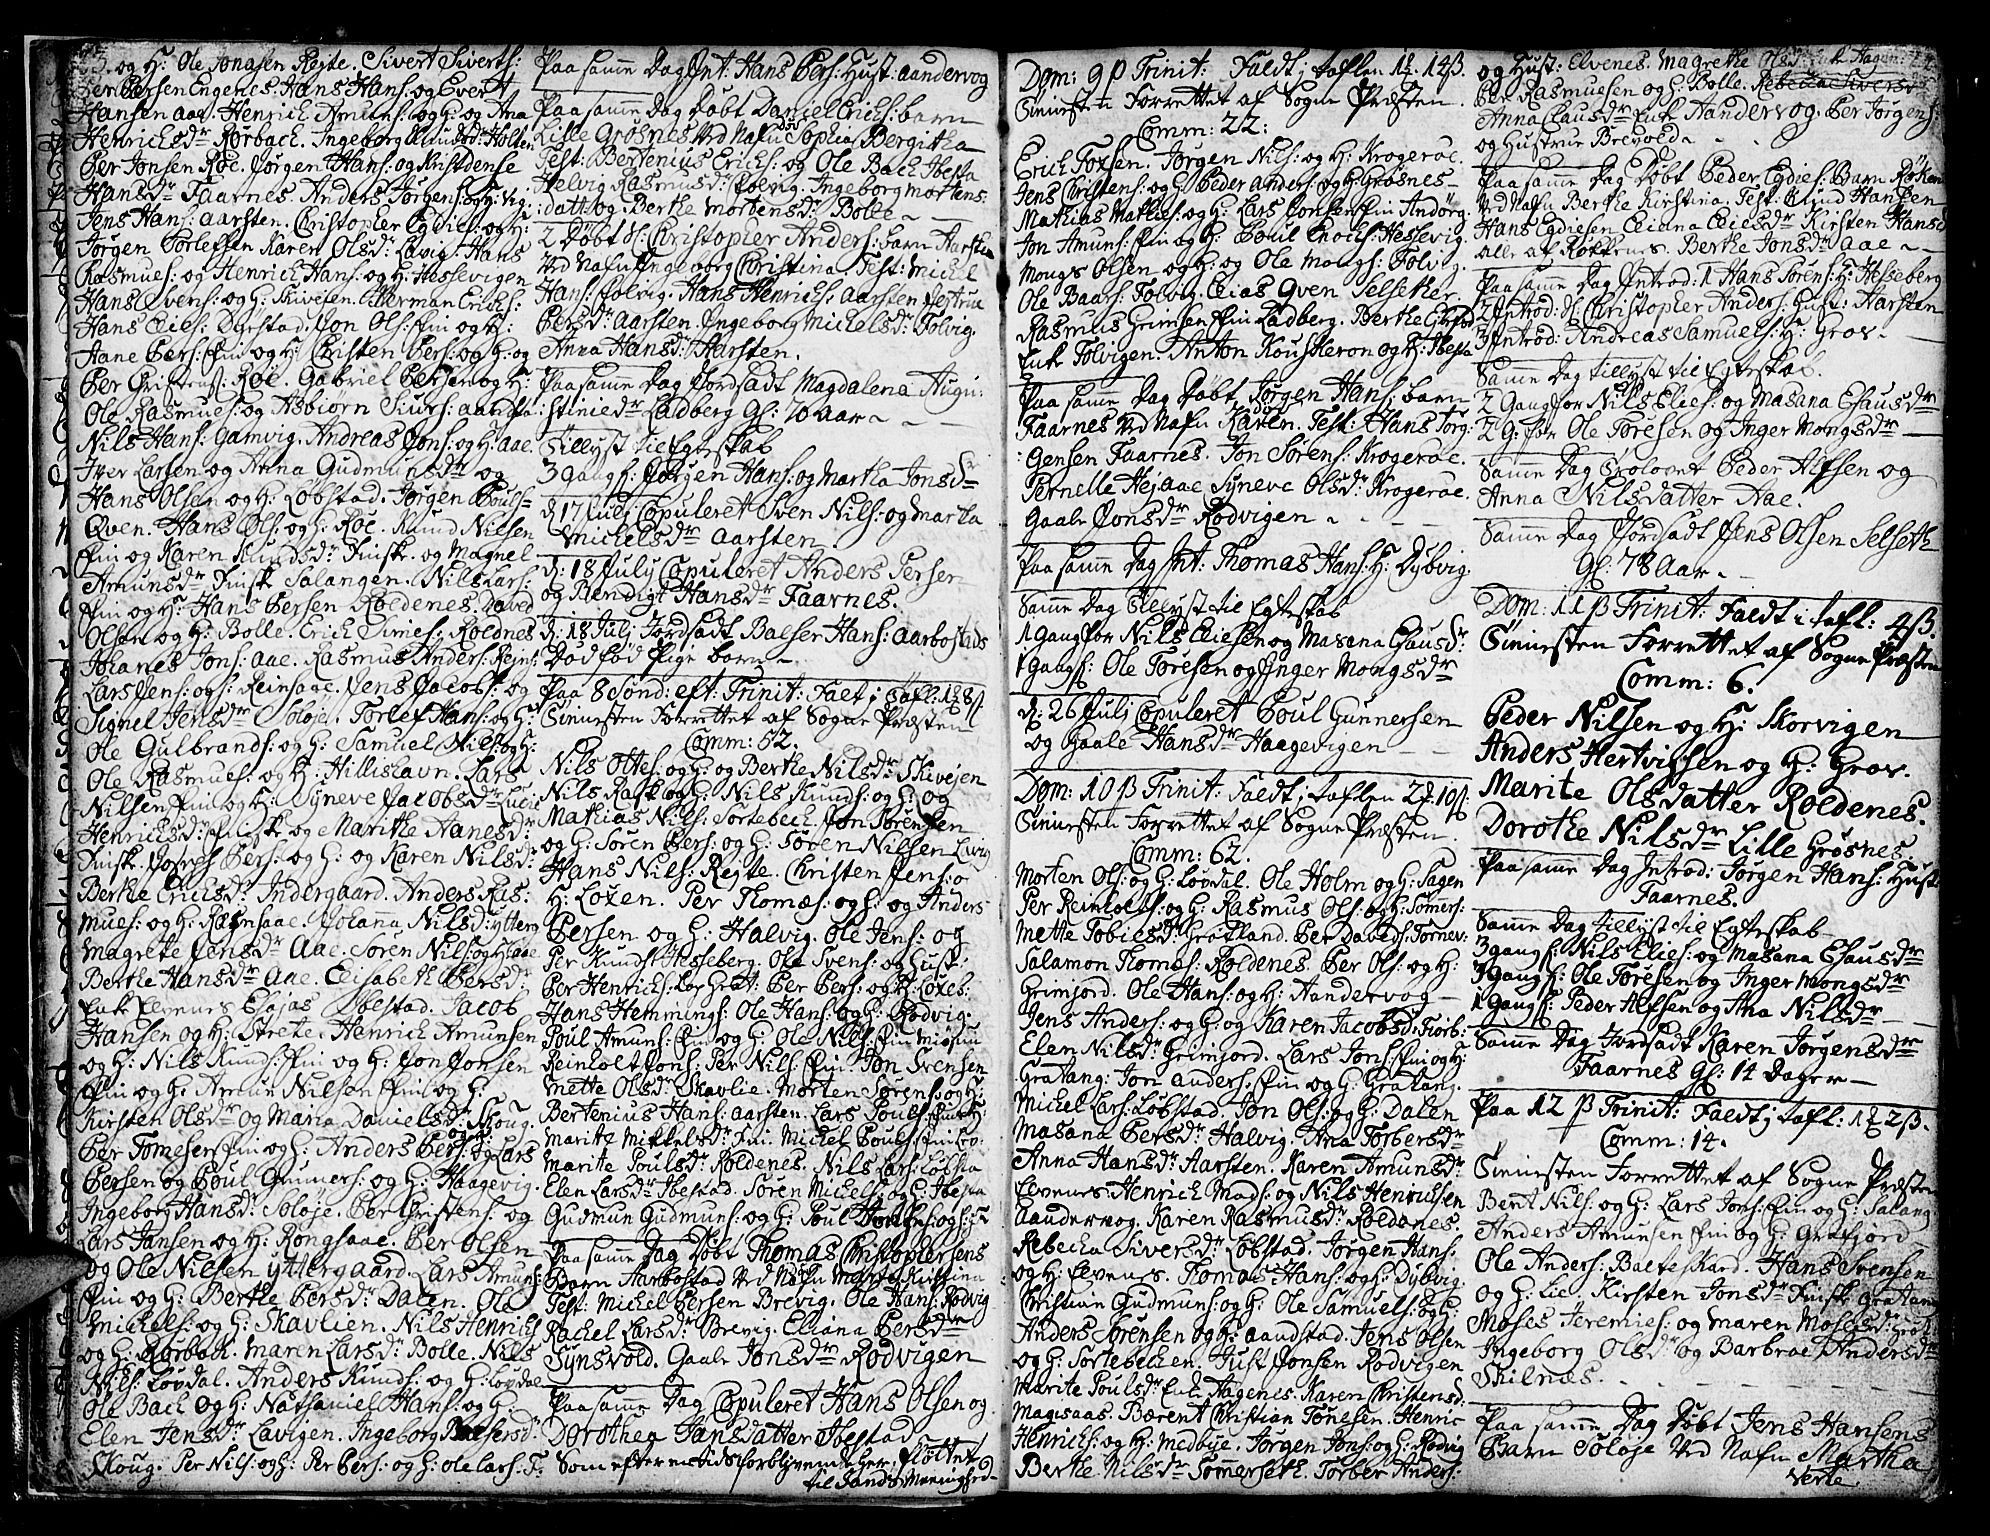 og H: Ole Jonasen Rejte. Sivert Siverts:
Per Persen Engenes. Hans Hans: og Evert
Hansen aae. Henrich Amuns: og H: og Ana
Henrichsdr Rørbach. Ingeborg Knudsd: Holten
Per Jonsen Roe. Jørgen Hans: og Kristdense
Hansdr Faarnes. Anders Jørgens: og H: vig.
Jens Hans: aarsten. Christopher Egdies: og H:
Jørgen Torlefsen Karen Olsdr Lavig. Hans
Rasmues: og Henrich Hans: og H: Hessevigen
Hans Svens: og H: Skivesen. Herman Erichs:
Hans Elies: Dyrstad. Jon Ols: fin og H:
Hane Pers: fin og H: Christen Pers: og H: og
Per Christens: Roe. Gabriel Persen og H:
Ole Rasmues: og Asbiørn Siurs: aansta
Nils Hans: Gamvig. Andreas Jons: og H: aae.
Iver Larsen og Anna Gudmunsdr og
Hans Olsen og H: Løbstad. Jørgen Pouls=
Qven. Hans Ols: og H: Roe. Knud Nilsen
fin og Karen Knudsdr Finsk. og Magnel
Amunsdr Finsk Salangen. Nils Lars:
fin og H: Hans Persen Roldenes. David
Olsen og H: Bolle. Erich Simes: Roldnes
Johanes Jons: aae. Rasmus Anders: Rejns:
Lars Jens: og H: Reinsaae. Jens Jacobs: og
Signel Jensdr Soløje. Torlef Hans: og H:
Ole Gulbrands: og H: Samuel Nils: og H:
Ole Rasmues: og H: Hillishavn. Lars
Nilsen fin og H: Syneve Jacobsdr Lucie
Henrichsdr finsk og Marithe Hanesdr
Finsk. Joseph Pers: og H: og Karen Nilsd:
Berthe Erichsdr Indergaard. Anders Ras:
mues: og H: Reinsaae. Johanna Nilsd: ytterg
Magrete Jensdr Aae. Søren Nils: og H: aae
Berthe Hansdr Aae. Elisabeth Persdr
Enke Elvenes Elias Ibestad. Jacob
Hansen og H: Strete. Henrich Amunsen
og H: Nils Knuds: fin og H: Jon Jonsen
fin og H: Amun Nilsen fin og H:
Kirsten Olsdr og Maria Danielsdr Skoug.
Per Tomesen fin og H: Anders Pers: og Lars
Persen og Poul Gunners: og H: Haagevig.
Ingeborg Hansdr Soløje. Per Christens: og
Lars Jansen og H: Rongsaae. Per Olsen
og Ole Nielsen yttergaard. Lars Amuns:
fin og H: Berthe Persdr Dalen. Ole
Michels: og H: Skavlien. Nils Henrichs
og H: Rørbach. Maren Larsdr Bolle. Nils
Nils: Løvdal. Anders Knuds: og H: Løvdal
Ole Bach og H: Nathaniel Hans: og H:
Elen Jensdr Lavigen. Ingeborg Balsersd:
Skoug. Per Nils: og H: Per Pers: og H: Ole Lars: F:
Paa samme Dag Int: Hans Pers: Hust: aandervog
Paa samme Dag Døbt Daniel Erichs: barn
Lille Grøsnes Ved Nafn Sophia Bergitha
Test: Bertenius Erichs: og Ole Bach Ibesta
Helvig Rasmusdr Follvig. Ingeborg Mortens:
:datt: og Berthe Mortensdr Bolle
2 Døbt d: Christopher Anders: barn Aarsten
Ved Nafn Ingeborg Christina. Test: Michel
Hans: Follvig. Hans Henrichs: Aarsten. Jertrue
Persdr Aarsten. Ingeborg Michelsdr Follvig.
Anna Hansd: Aarsten.
Paa samme Dag Jordsadt Magdalena Augu:
:stiniedr Ladberg Gl: 70 aar
Tillyst til Egteskab
3 Gang f: Jørgen Hans: og Martha Jonsdr
d: 17 July Copuleret Sven Nils: og Martha
Michelsdr aarsten.
d: 18 July Copuleret Anders Persen
og Rendigt Hansdr Faarnes.
d: 18 Julj Jordsadt Balser Hans: Aarbostads
Dødfød Pige barn
Paa 8 Sønd: eft: Trinit: Falt i Tafl: 1 8ß
Tienesten Forrettet af Sogne Præsten
Comm: 52.
Nils Ottes: og H: og Berthe Nilsdr Skivejen
Nils Rask og H: Nils Knuds: og H: og
Mathias Nils: Sortebech. Jon Sørensen
og H: Søren Pers: og H: Søren Nilsen Lavig
Hans Nils: Rejte. Christen Jens: o
H: Loxen. Per Thomæs: og H: og Anders
Persen og H: Halvig. Ole Jens: og
Per Knuds: Hesseberg. Ole Svens: og Hust:
Per Henrichs: Lor Grat: Per Pers: og H: Loxes:
Hans Hemmings: Ole Hans: og H: Rodvig.
Poul Amuns: fin og H: Ole Nils: fin
Reinholt Jons: Per Nils: fin. Jon Svensen
Mette Olsdr Skavlie. Morten Sørens: og H:
Bertenius Hans: aarsten. Lars Pouls: fin og H:
Marite Mikkelsdr fin. Michel Pouls: fin
Marite Poulsdr Roldenes. Nils Lars: Løbsta
Elen Larsdr Ibestad. Søren Michels: og H: Ibesta
Gudmun Gudmuns: og H: Poul Hans: og H:
Paa samme Dag Døbt Thomas Christophersens
Barn Aarbostad Ved Nafn Martha Kirstina
Test: Michel Persen Brevig. Ole Hans: Rodvig
Rachel Larsdr Brevig. Eliana Persdr
Synsvold. Gaale Jonsdr Rodvigen
Paa samme Dag Copuleret Hans Olsen og
Dorothea Hansdatter Ibestad
Som efter en tids forblivende her. fløttet
til Sands Menighed
Dom: 9 p Trinit: Faldt i Taflen 1 14ß.
Tienesten Forrettet af Sogne Præsten
Comm: 22:
Erich Toxsen. Jørgen Nils: og H: Krogerae.
Jens Christens: og H: Peder Anders: og H: Grøsnes
Mathias Mathies: og H: Lars Jonsen fin Andørg
Jon Amuns: fin og H: Poul Enochs: Hessevig.
Mongs Olsen og H: og Ole Mongs: Follvig.
Ole Baars: Follvig. Elias Qven Selsether
Rasmus Grimsen fin Ladberg. Berthe
Enke Follvigen. Anton Kousheron og H: Ibesta
Paa samme Dag Døbt Jørgen Hans: barn
Faarnes Ved Nafn Karen. Test: Hans Jørg:
:gensen Faarnes. Jon Sørens: Krogerae.
Pernelle Hejaae Syneve Olsdr Krogerae.
Gaale Jonsdr Rodvigen
Paa samme Dag Int: Thomas Hans: H: Dybvig
Samme Dag Tillyst til Egteskab
1 Gang for Nils Eliesen og Masana Ehausdr
1 Gang f: Ole Toresen og Inger Mongsdr
d: 26 Julj Copuleret Poul Gunnersen
og Gaale Hansdr Haagevigen
Dom: 10 p Trinit: Faldt i Taflen 2 10ß.
Tienesten Forrettet af Sogne Præsten.
Comm: 62.
Morten Ols: og H: Løvdal. Ole Holm og H: Hagen
Per Reinholts: og H: Rasmus Ols: og H: Somers:
Mette Tobiesdr Grøtland. Per Davids: Tornev:
Salamon Thomæs: Roldenes. Per Ols: og H:
Grimjord. Ole Hans: og H: Aandervog
Jens Anders: og H: og Karen Jacobsdr Fiorb:
Elen Nilsdr Grimjord. Lars Jons: fin og H:
Gratang. Jon Anders: fin og H: Gratang.
Michel Lars: Løbstad. Jon Ols: og H: Dalen
Masana Persdr Halvig. Ana Torbersdr
Anna Hansdr Aarsten. Karen Amunsdr
Elvenes. Henrich Mads: og Nils Henrichsen
Aandervog. Karen Rasmusdr Roldenes.
Rebecka Siversdr Løbstad. Jørgen Hans:
og H: Elvenes. Thomas Hans: og H: Dybvig
Christian Gudmuns: og H: Ole Samuels: og H:
Anders Sørensen og H: aandstad. Jens Olsen
og H: Sortebechen. Just Jonsen Rodvigen
Marite Poulsdr Enke Hagenes. Karen Christensd.
Magisaas. Bærent Christian Tønesen. Henric
Henrichs: og H: Medbye. Jørgen Jons: og H: Rodvig
Berthe Nilsdr Sommerseth. Torber Anders:
og Hust: Elvenes. Magrethe Olsdr Hagen:
Per Rasmuesen og H: Bolle. Rebecka Siversdr
Anna Clausdr Enke Aandervog. Per Jørgens:
og Hustrue Brevolda
Paa samme Dag Døbt Peder Egdies: Barn Røken
Ved Nafn Berthe Kirstina. Test: Knud Hansen
Hans Egdiesen Eliana Eliesdr Kirsten Hansd
alle af Røkenes. Berthe Jonsdr Aae
Paa samme Dag Introd: 1 Hans Sørens: H: Hesseberg
2 Introd: d: Christopher Anders: Hust: Aarsten
3 Introd: Andreas Samuels: H: Grov
Samme Dag tillyst til Egteskab.
2 Gang for Nils Elies: og Masana Ehausdr
2 G: for Ole Toresen og Inger Mongsdr
Samme Dag Trolovet Peder Alfsen og
Anna Nilsdatter Aae.
Samme Dag Jordsadt Jens Olsen Selseth
Gl: 78 Aar
Dom: 11 p Trinit: Faldt i Tafl: 4ß.
Tienesten Forrettet af Sogne Præsten
Comm: 6.
Peder Nilsen og H: Skorvigen
Anders Hertvigsen og H: Grov.
Marite Olsdatter Roldenes.
Dorothe Nilsdr Lille Grøsnes.
Paa samme Dag Introd: Jørgen Hans: Hust:
Faarnes.
Samme Dag tillyst til Egteskab
3 gang f: Nils Elies: og Masana Ehausdr
3 Gang f: Ole Toresen og Inger Mongsdr
1 Gang f: Peder Alfsen og Ana Nilsdr
Samme Dag Jordsadt Karen Jørgensdr
Faarnes Gl: 14 Dager
Paa 12 p Trinit: Faldt i Tafl: 1 2ß.
Comm: 14.
Tienesten Forrettet af Sogne Præsten
Bent Nils: og H: Lars Jons: fin og H: Salang
Anders Amunsen fin og H: Gratfjord
Ole Anders: Balteskard. Hans Svensen
og H: Lie. Kirsten Jonsdr Finsk Gratang
Moses Jeremies: og Maren Mosesdr
Ingeborg Olsdr og Barbroe Andersdr
Skilnæs.
Paa samme Dag Døbt Jens Hansens
Barn Soløje Ved Nafn Martha
Verte